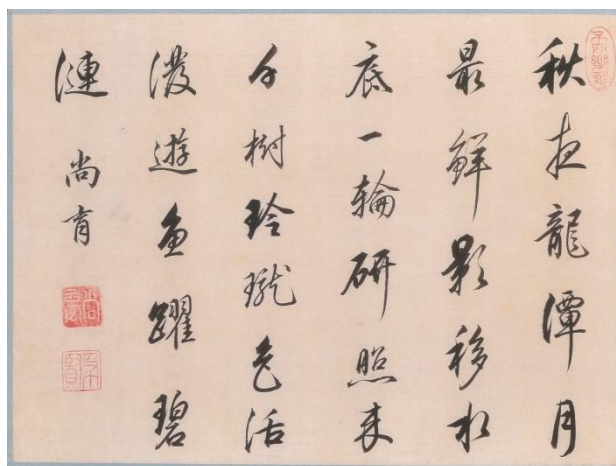 秋夜龍潭月
最鮮影移水
底一輪研照來
千樹玲瓏色活
潑遊魚躍碧
漣
尚育